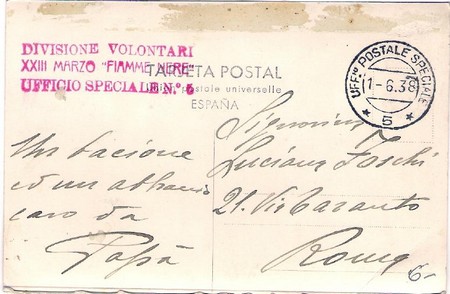 DIVISIONE VOLONTARI
XXIII MARZO "FIAMME NERE"
UFFICIO SPECIALE N.º
TARJETA POSTAL
postale universelle
ESPAÑA
UFFº POSTALE SPECIALE
1-6.38
* 5 *
Un bacione
ed un abbraccio
caro da
Papà
Signorina
Luciana Foschi
21. Via Taranto
Roma
6-